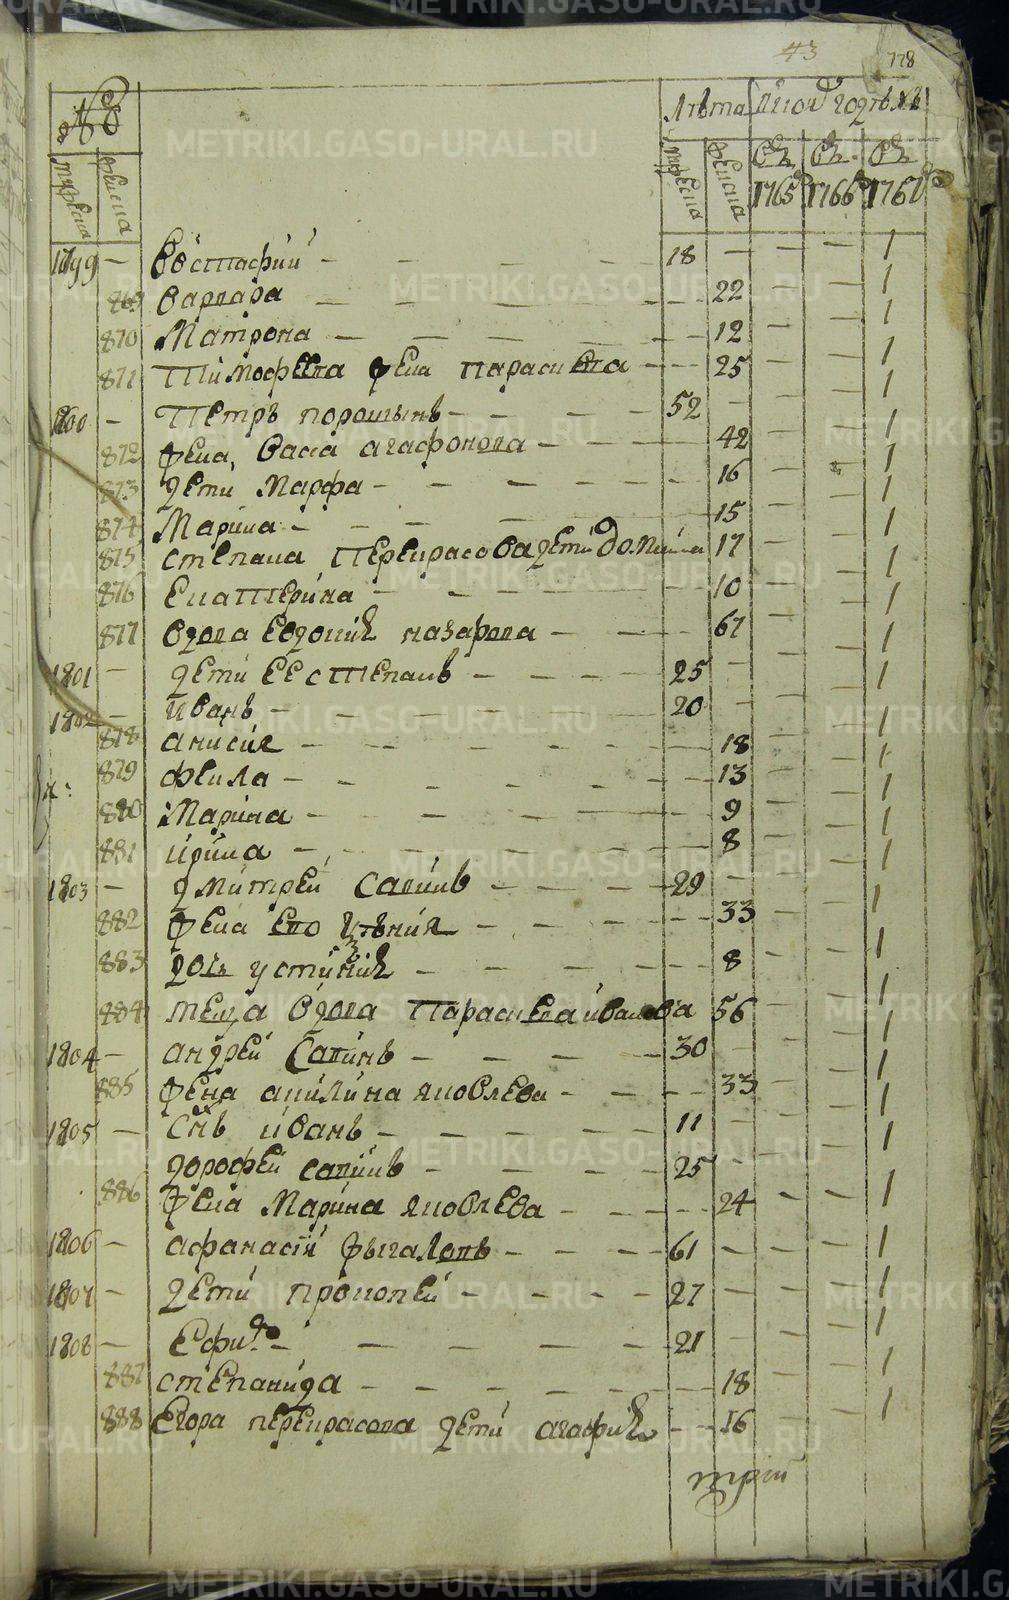 43
778
№
Лѣта
мужеска
женска
мужеска
женска
1765 1766 1767
1799 — Евстафий — 18 — — — 1
869 Варвара — 22 — — 1
870 Матрона — 12 — — 1
871 Тимофеева жена Парасковья — 25 — — 1
1800 — Петръ порошынъ — 52 — — — 1
872 жена, Васса агафонова — 42 — — 1
873 дети Марфа — 16 — — 1
874 Марина — 15 — — 1
875 степана Перекрасова дети 17 — — 1
876 Екатерина — 10 — — 1
877 вдова Евдокия назарова — 67 — — 1
1801 — дети ее степанъ — 25 — — — 1
1802 — иванъ — 20 — — — 1
878 анисия — 18 — — 1
879 фекла — 13 — — 1
880 Марина — 9 — — 1
881 ирина — 8 — — 1
1803 — дмитрей Сапинъ — 29 — — — 1
882 жена ево — 33 — — 1
883 дочь устиния — 8 — — 1
884 теща вдова Парасковья иванова 56 — — 1
1804 — андрей Сапинъ — 30 — — — 1
885 жена акилина яковлева — 33 — — 1
1805 — снъ иванъ — 11 — — — 1
дорофей сапинъ — 25 — — — 1
886 жена Марина яковлева — 24 — — 1
1806 — афанасий — 61 — — — 1
1807 — дети прокопей — 27 — — — 1
1808 — Ефим — 21 — — — 1
887 степанида — 18 — — 1
888 Егора перекрасова дети агафия — 16 — — 1
METRIKI.GASO-URAL.RU